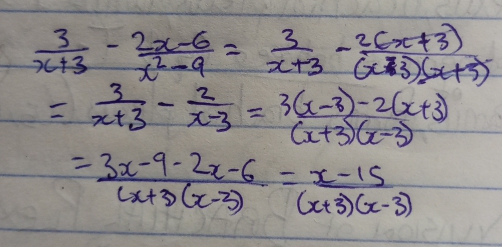 3/(x+3) - (2x-6)/(x²-9) = 3/(x+3) - 2(x+3)/((x-3)(x+3))
= 3/(x+3) - 2/(x-3) = (3(x-3)-2(x+3))/((x+3)(x-3))
= (3x-9-2x-6)/((x+3)(x-3)) = (x-15)/((x+3)(x-3))